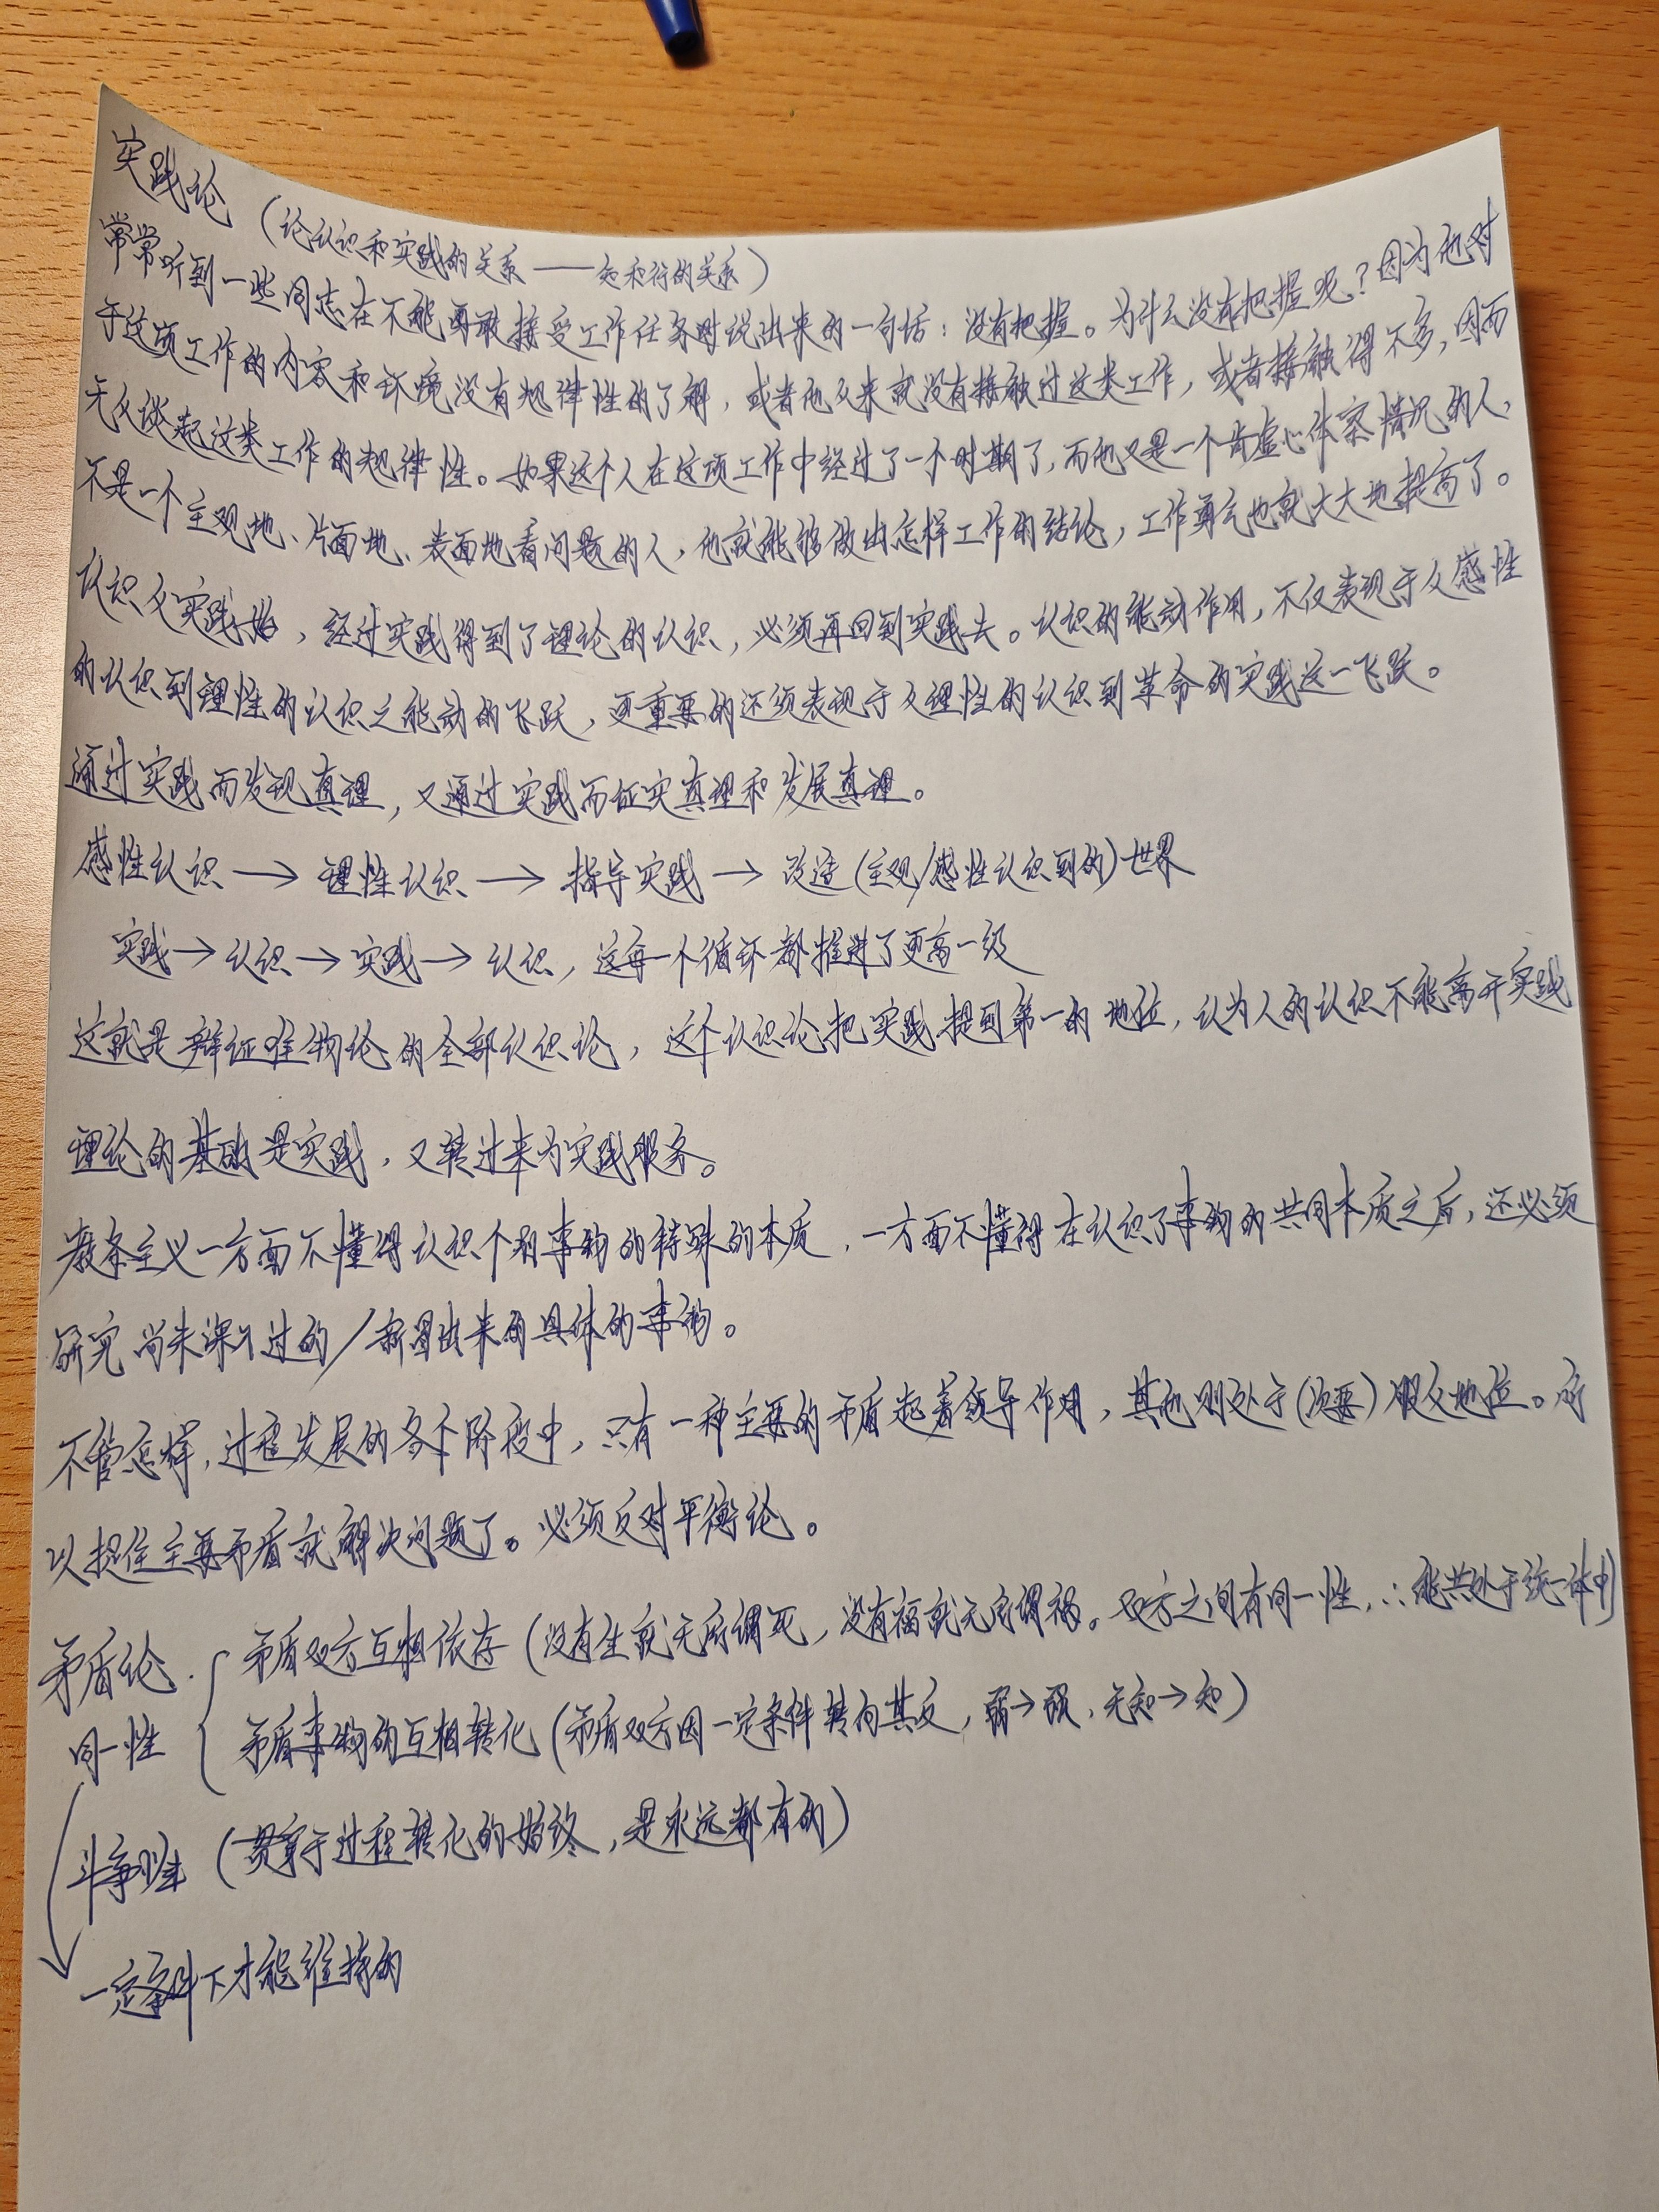 实践论（论认识和实践的关系——知和行的关系）
常常听到一些同志在不能勇敢接受工作任务时说出来的一句话：没有把握。为什么没有把握呢？因为他对
于这项工作的内容和环境没有规律性的了解，或者他从来就没有接触过这类工作，或者接触得不多，因而
无从谈起这类工作的规律性。如果这个人在这项工作中经过了一个时期了，而他又是一个肯虚心体察情况的人，
不是一个主观地、片面地、表面地看问题的人，他就能够做出怎样工作的结论，工作勇气也就大大地提高了。
认识从实践始，经过实践得到了理论的认识，必须再回到实践去。认识的能动作用，不仅表现于从感性
的认识到理性的认识之能动的飞跃，更重要的还须表现于从理性的认识到革命的实践这一飞跃。
通过实践而发现真理，又通过实践而证实真理和发展真理。
感性认识→理性认识→指导实践→改造(主观/感性认识到的)世界
实践→认识→实践→认识，这每一个循环都推进了更高一级
这就是辩证唯物论的全部认识论，这个认识论把实践提到第一的地位，认为人的认识不能离开实践
理论的基础是实践，又转过来为实践服务。
教条主义一方面不懂得认识个别事物的特殊的本质，一方面不懂得在认识了事物的共同本质之后，还必须
研究尚未深入过的/新冒出来的具体的事物。
不管怎样，过程发展的各个阶段中，只有一种主要的矛盾起着领导作用，其他则处于(次要)服从地位。所
以捉住主要矛盾就解决问题了。必须反对平衡论。
矛盾论
同一性
矛盾双方互相依存（没有生就无所谓死，没有福就无所谓祸。双方之间有同一性，∴能共处于统一体中）
矛盾事物的互相转化（矛盾双方因一定条件转向其反，弱→强，无知→知）
斗争性（贯穿于过程转化的始终，是永远都有的）
一定条件下才能维持的